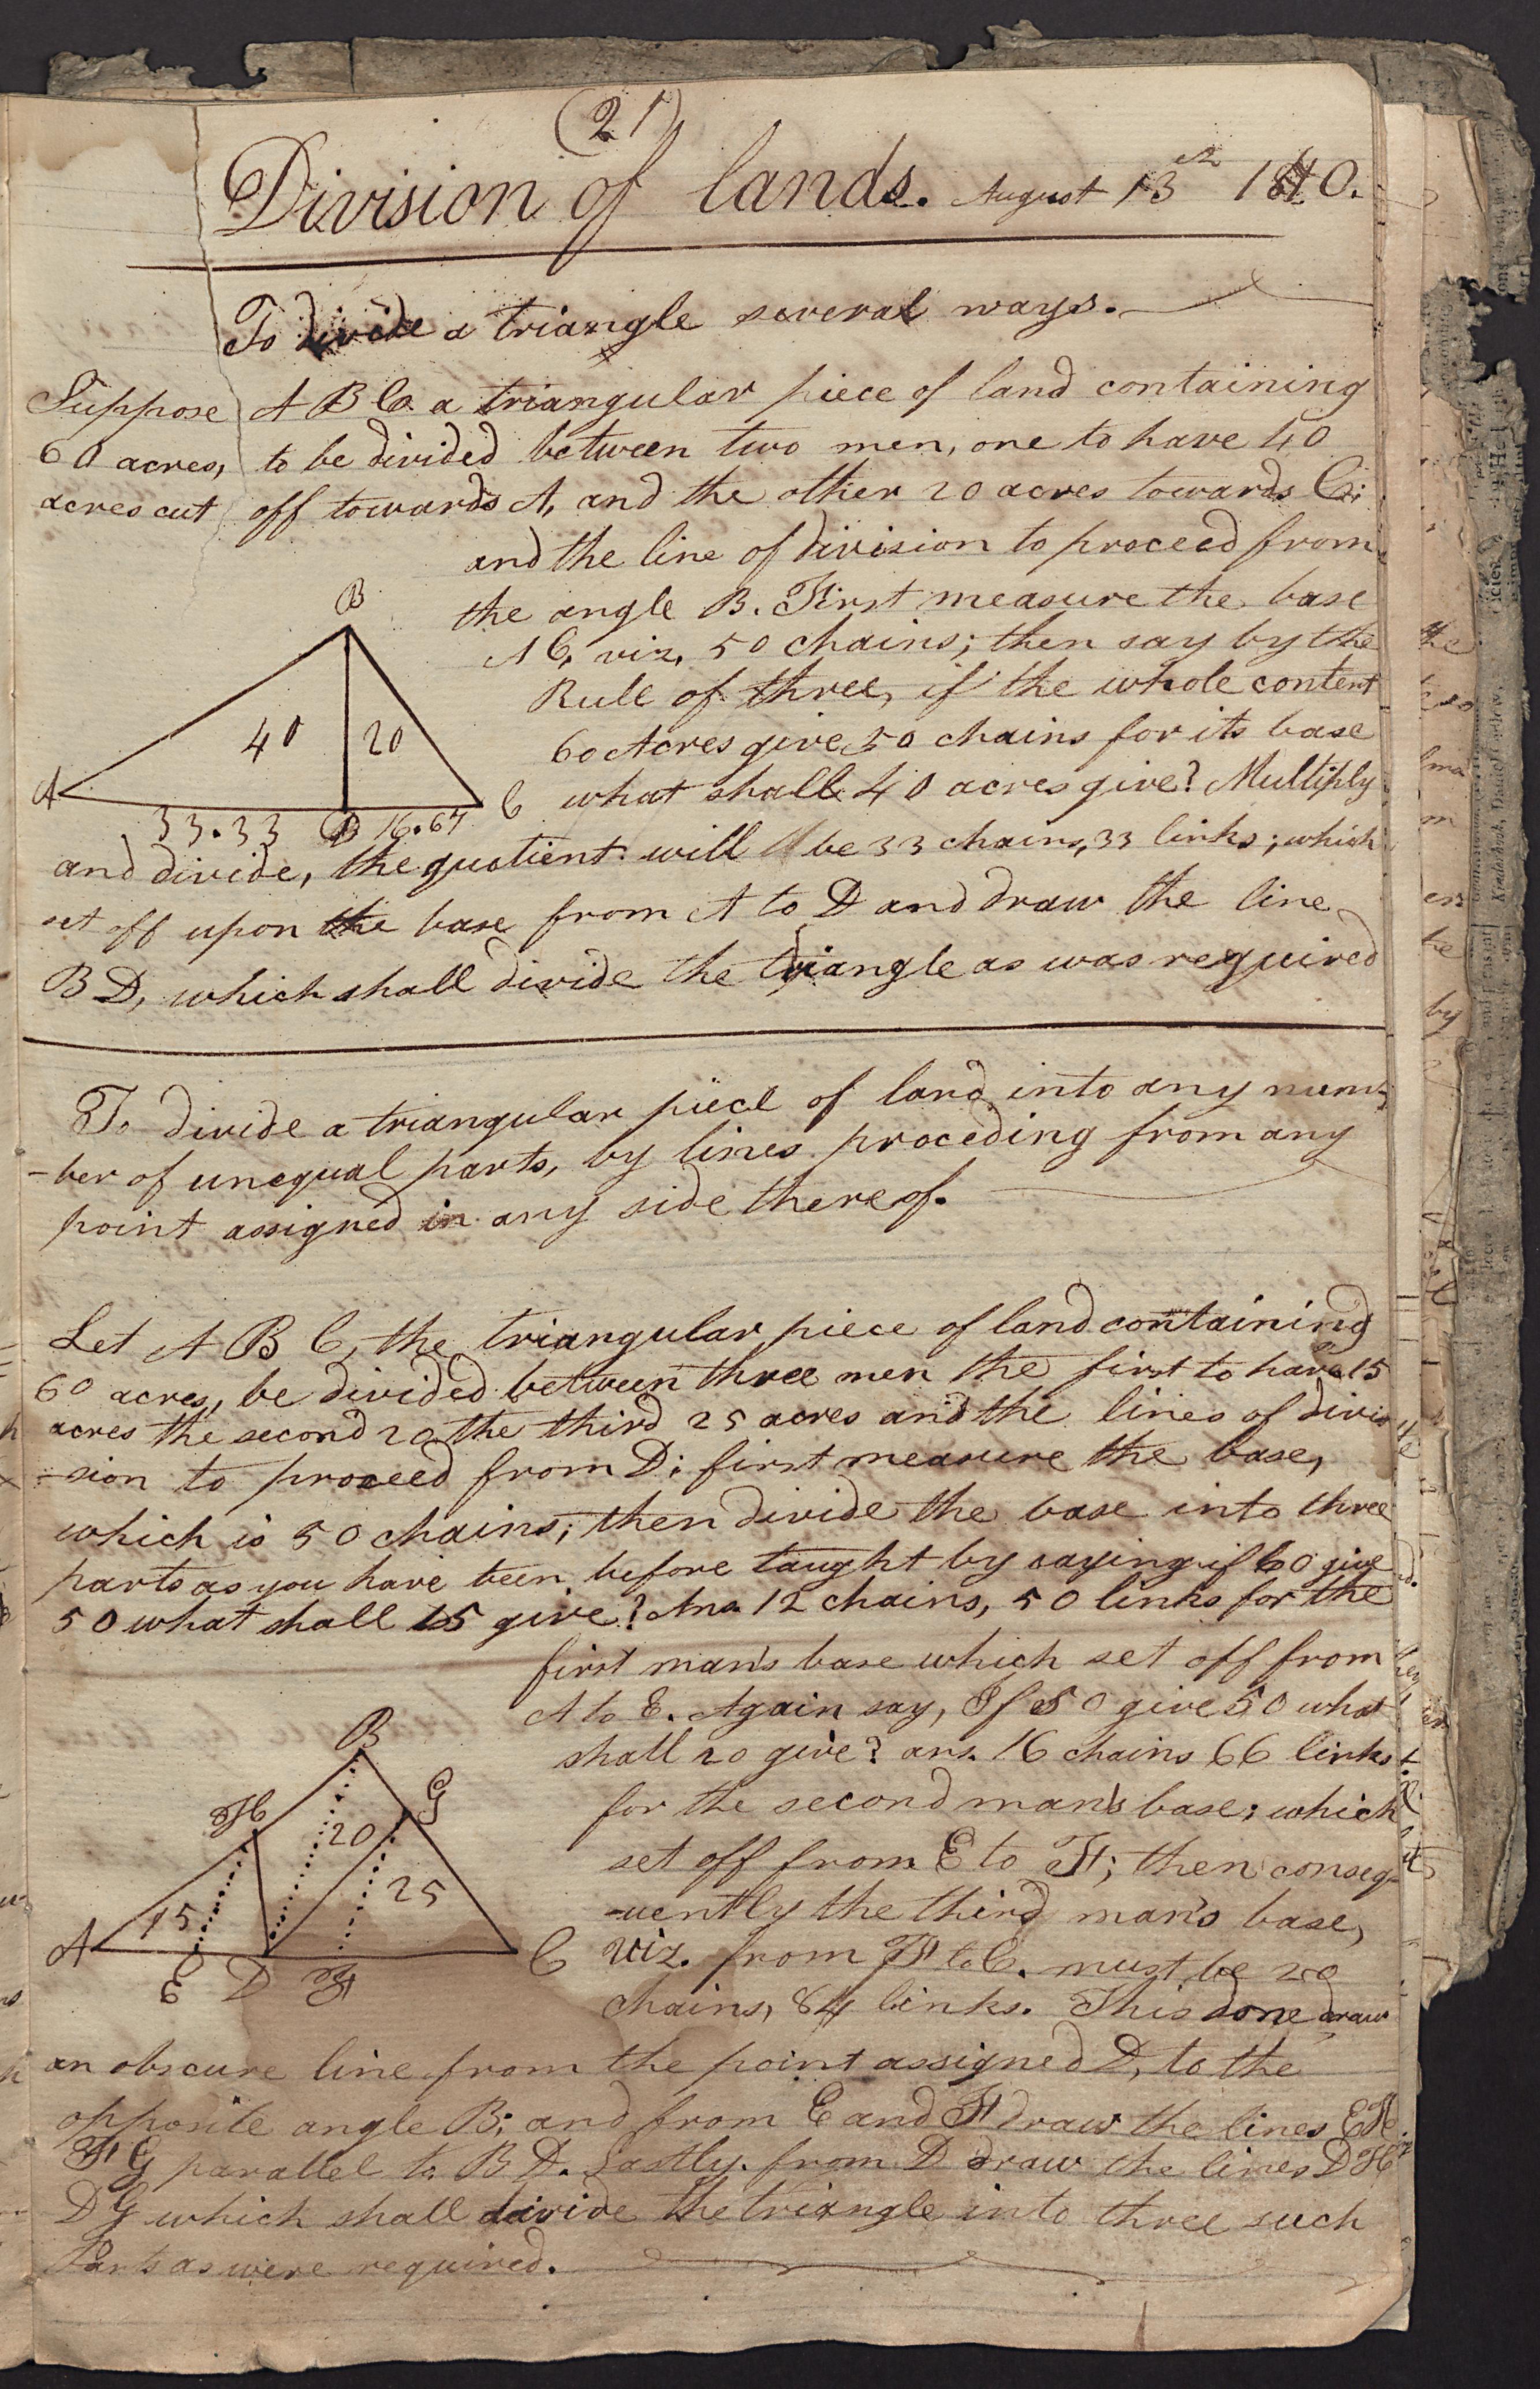 (21)
Division of lands. August 13th 1840.
To divide a triangle several ways.
Suppose A B C. a triangular piece of land containing
60 acres, to be divided between two men, one to have 40
acres cut off towards A, and the other 20 acres towards C;
and the line of division to proceed from
the angle B. First measure the base
A C, viz, 50 chains; then say by the
Rule of three, if the whole content
60 Acres give 50 chains for its base
what shall 40 acres give? Multiply
B
40 20
A C
33.33 D 16.67
and divide, the quotient will be 33 chains, 33 links; which
set off upon the base from A to D and draw the line
B D, which shall divide the triangle as was required
To divide a triangular piece of land into any num-
-ber of unequal parts, by lines proceding from any
point assigned in any side thereof.
Let A B C, the triangular piece of land containing
60 acres, be divided between three men the first to have 15
acres the second 20 the third 25 acres and the lines of divis
-sion to proceed from D; first measure the base,
which is 50 chains; then divide the base into three
parts as you have been before taught by saying if 60 give
50 what shall 15 give? Ans. 12 chains, 50 links for the
first man's base which set off from
A to E. Again say, If 50 give 50 what
shall 20 give? ans. 16 chains 66 links
for the second man's base; which
set off from E to F; then conseq-
-uently the third man's base,
viz. from F to C. must be 20
chains, 84 links. This done draw
B
H G
20
15 25
A C
E D F
an obscure line from the point assigned D, to the
opposite angle B; and from E and F draw the lines E H.
F G parallel to B D. Lastly. from D draw the lines D H
D G which shall divide the triangle into three such
Parts as were required.